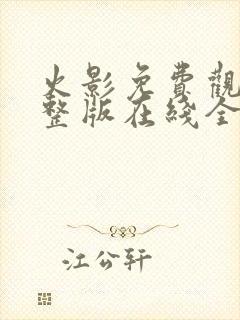 火影免費觀
整版在綫全
江公轩